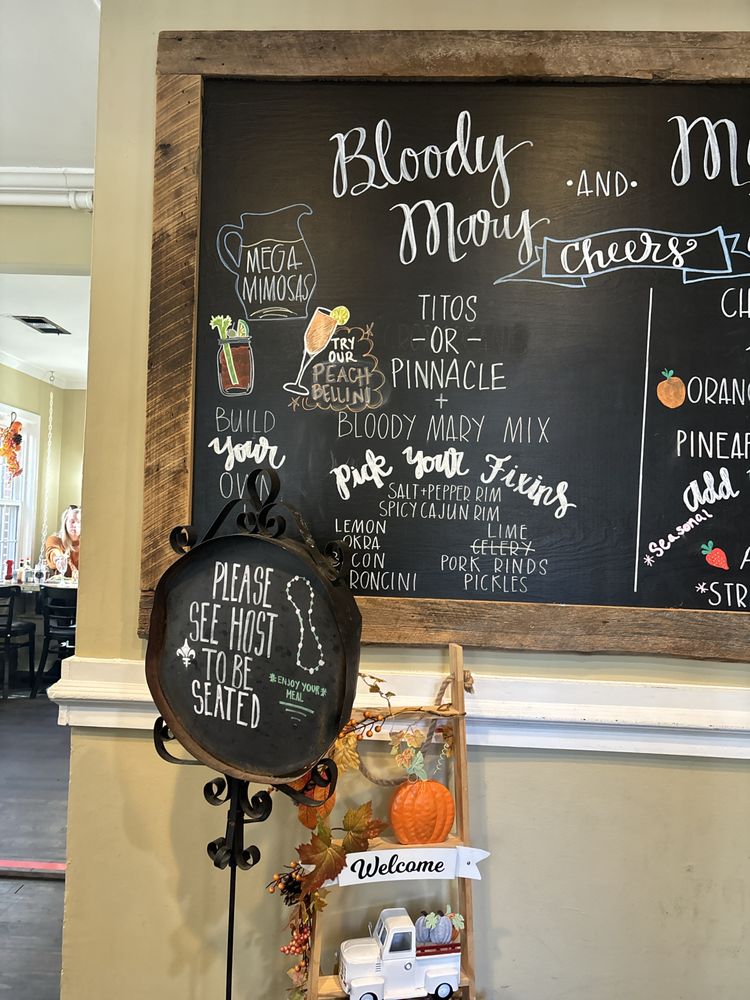 Bloody
Mary
•AND•
Cheers
MEGA
MIMOSAS
TRY
OUR
PEACH
BELLINI
TITOS
-OR-
PINNACLE
+
BLOODY MARY MIX
BUILD
Your
OWN
Pick Your Fixins
SALT+PEPPER RIM
SPICY CAJUN RIM
LEMON
OKRA
CON
RONCINI
LIME
CELERY
PORK RINDS
PICKLES
CH
ORANG
PINEAP
Add
*Seasonal
*STR
PLEASE
SEE HOST
TO BE
SEATED
*ENJOY YOUR*
MEAL
Welcome